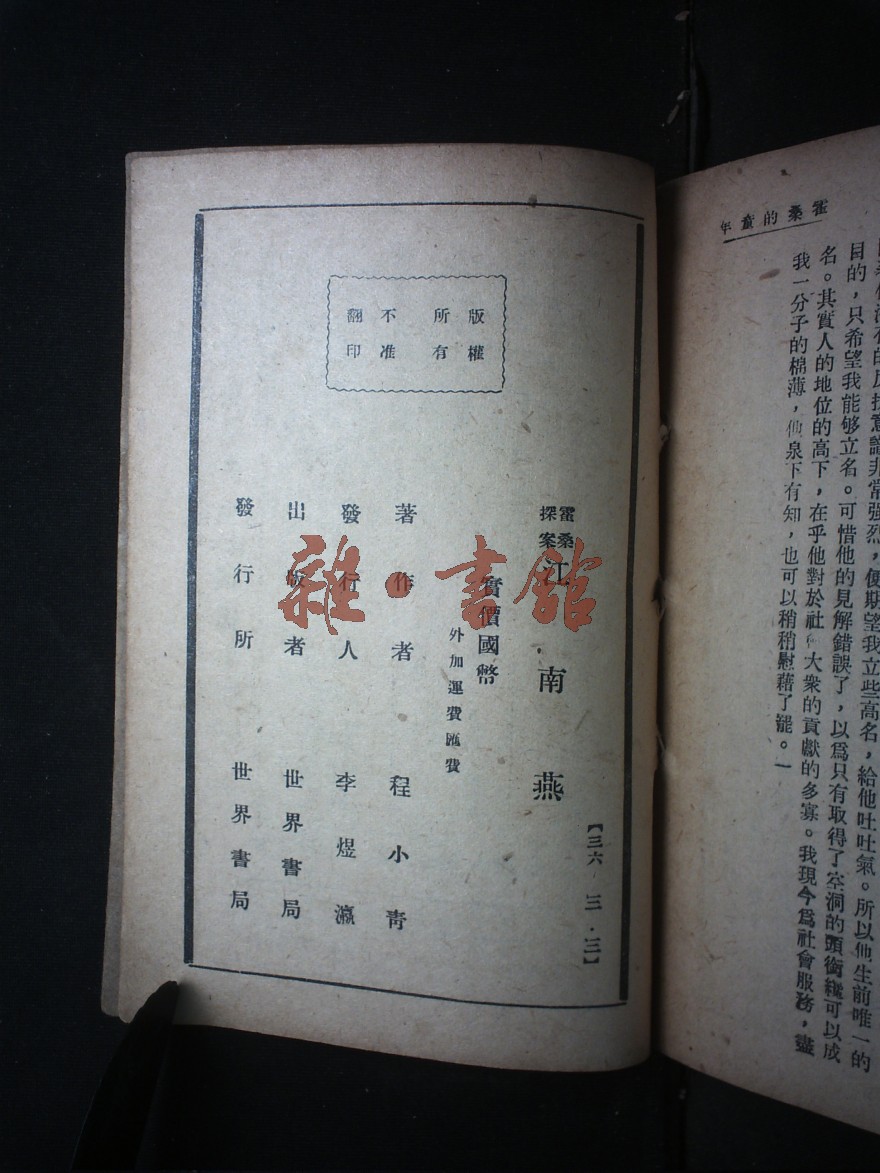 霍桑的童年
的反抗意識非常強烈，便期望我立些高名，給他吐吐氣。所以他生前唯一的
目的，只希望我能够立名。可惜他的見解錯誤了，以爲只有取得了空洞的頭銜纔可以成
名。其實人的地位的高下，在乎他對於社 大衆的貢獻的多寡。我現今爲社會服務，盡
我一分子的棉薄，他泉下有知，也可以稍稍慰藉了罷。一
【三六·三·三】
霍桑探案 江南燕
實價國幣
外加運費匯費
著作者 程小青
發行人 李煜瀛
出版者 世界書局
發行所 世界書局
版權
所有
不准
翻印
雜·書館